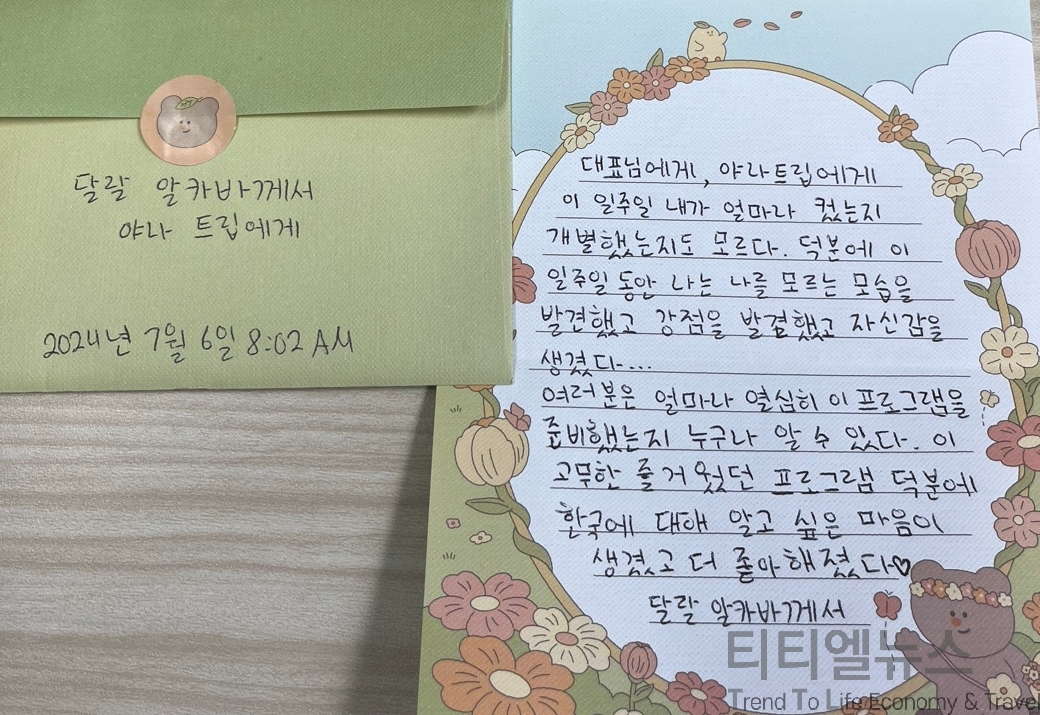 달랄 알카바께서
야라 트립에게
2024년 7월 6일 8:02 AM
대표님에게, 야라트립에게
이 일주일 내가 얼마나 컸는지
개별했는지도 모르다. 덕분에 이
일주일 동안 나는 나를 모르는 모습을
발견했고 강점을 발결했고 자신감을
생겼다...
여러분은 얼마나 열심히 이 프로그램을
준비했는지 누구나 알 수 있다. 이
고무한 즐거웠던 프로그램 덕분에
한국에 대해 알고 싶은 마음이
생겼고 더 좋아해졌다♡
달랄 알카바께서
티티엘뉴스
Trend To Life Economy & Travel